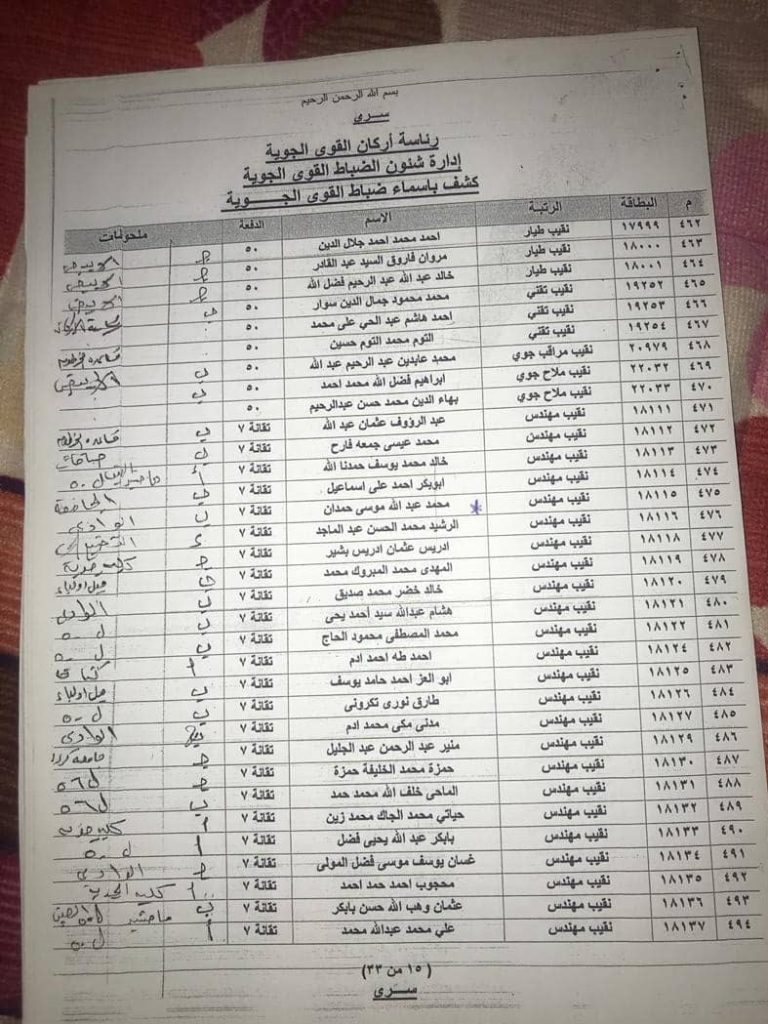 بسم الله الرحمن الرحيم
سـرى
رئاسة أركان القوى الجوية
إدارة شئون الضباط القوى الجوية
كشف باسماء ضباط القوى الجـــوية
م البطاقة الرتبة الاسم الدفعة ملحوظات
٤٦٢ ١٧٩٩٩ نقيب طيار احمد محمد احمد جلال الدين ٥٠
٤٦٣ ١٨٠٠٠ نقيب طيار مروان فاروق السيد عبد القادر ٥٠
٤٦٤ ١٨٠٠١ نقيب طيار خالد عبد الله عبد الرحيم فضل الله ٥٠
٤٦٥ ١٩٢٥٢ نقيب تقني محمد محمود جمال الدين سوار ٥٠
٤٦٦ ١٩٢٥٣ نقيب تقني احمد هاشم عبد الحي على محمد ٥٠
٤٦٧ ١٩٢٥٤ نقيب تقني التوم محمد التوم حسين ٥٠
٤٦٨ ٢٠٩٧٩ نقيب مراقب جوي محمد عابدين عبد الرحيم عبد الله ٥٠
٤٦٩ ٢٢٠٣٢ نقيب ملاح جوي ابراهيم فضل الله محمد احمد ٥٠
٤٧٠ ٢٢٠٣٣ نقيب ملاح جوي بهاء الدين محمد حسن عبدالرحيم ٥٠
٤٧١ ١٨١١١ نقيب مهندس عبد الرؤوف عثمان عبد الله تقانة ٧
٤٧٢ ١٨١١٢ نقيب مهندس محمد عيسى جمعه فارح تقانة ٧
٤٧٣ ١٨١١٣ نقيب مهندس خالد محمد يوسف حمدنا الله تقانة ٧
٤٧٤ ١٨١١٤ نقيب مهندس ابوبكر احمد على اسماعيل تقانة ٧
٤٧٥ ١٨١١٥ نقيب مهندس محمد عبد الله موسى حمدان تقانة ٧
٤٧٦ ١٨١١٦ نقيب مهندس الرشيد محمد الحسن عبد الماجد تقانة ٧ الوادى
٤٧٧ ١٨١١٨ نقيب مهندس ادريس عثمان ادريس بشير تقانة ٧
٤٧٨ ١٨١١٩ نقيب مهندس المهدى محمد المبروك محمد تقانة ٧
٤٧٩ ١٨١٢٠ نقيب مهندس خالد خضر محمد صديق تقانة ٧
٤٨٠ ١٨١٢١ نقيب مهندس هشام عبدالله سيد أحمد يحى تقانة ٧ الوادى
٤٨١ ١٨١٢٢ نقيب مهندس محمد المصطفى محمود الحاج تقانة ٧
٤٨٢ ١٨١٢٤ نقيب مهندس احمد طه احمد ادم تقانة ٧
٤٨٣ ١٨١٢٥ نقيب مهندس ابو العز احمد حامد يوسف تقانة ٧
٤٨٤ ١٨١٢٦ نقيب مهندس طارق نورى تكرونى تقانة ٧
٤٨٥ ١٨١٢٧ نقيب مهندس مدنى مكى محمد ادم تقانة ٧
٤٨٦ ١٨١٢٩ نقيب مهندس منير عبد الرحمن عبد الجليل تقانة ٧ الوادى
٤٨٧ ١٨١٣٠ نقيب مهندس حمزة محمد الخليفة حمزة تقانة ٧
٤٨٨ ١٨١٣١ نقيب مهندس الماحى خلف الله محمد حمد تقانة ٧
٤٨٩ ١٨١٣٢ نقيب مهندس حياتي محمد الجاك محمد زين تقانة ٧
٤٩٠ ١٨١٣٣ نقيب مهندس بابكر عبد الله يحيى فضل تقانة ٧
٤٩١ ١٨١٣٤ نقيب مهندس غسان يوسف موسى فضل المولى تقانة ٧
٤٩٢ ١٨١٣٥ نقيب مهندس محجوب احمد حمد احمد تقانة ٧ الوادى
٤٩٣ ١٨١٣٦ نقيب مهندس عثمان وهب الله حسن بابكر تقانة ٧
٤٩٤ ١٨١٣٧ نقيب مهندس علي محمد عبدالله محمد تقانة ٧
(١٥ من ٣٣)
سـرى